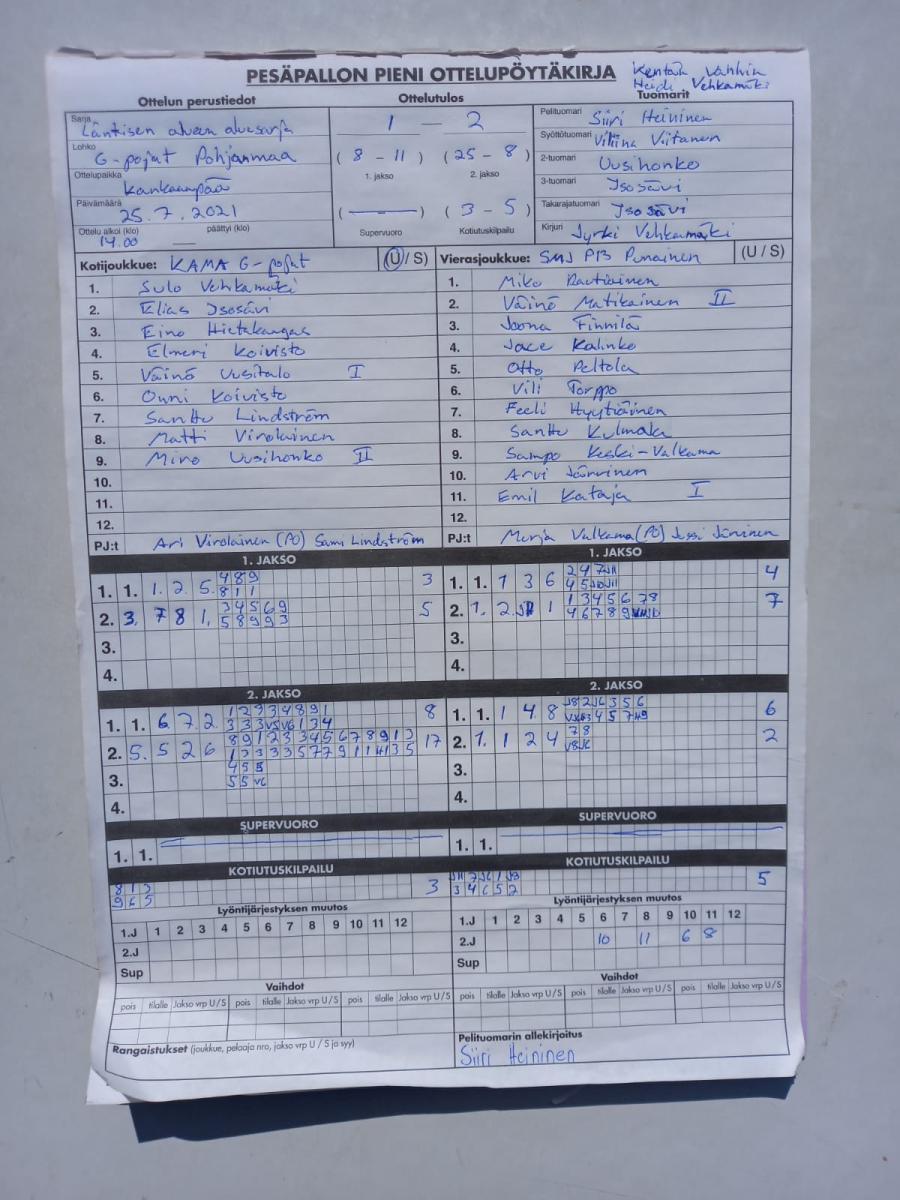 PESÄPALLON PIENI OTTELUPÖYTÄKIRJA
Kentän Vanhin
Heidi Vehkamäki
Ottelun perustiedot
Ottelutulos
Tuomarit
Sarja Läntisen alueen aluesarja
Lohko G-pojat Pohjanmaa
Ottelupaikka Kankaanpää
Päivämäärä 25.7.2021
Ottelu alkoi (klo) päättyi (klo)
14.00 —
1 — 2
( 8 - 11 ) ( 25 - 8 )
1. jakso 2. jakso
( — ) ( 3 - 5 )
Supervuoro Kotiutuskilpailu
Pelituomari Siiri Heininen
Syöttötuomari Viitanen
2-tuomari Uusihonko
3-tuomari Isosävi
Takarajatuomari Isosävi
Kirjuri Jyrki Vehkamäki
Kotijoukkue: KAMA G-pojat (U / S)
1. Sulo Vehkamäki
2. Elias Isosävi
3. Eino Hietakangas
4. Elmeri Koivisto
5. Väinö Uusitalo I
6. Onni Koivisto
7. Santtu Lindström
8. Matti Virolainen
9. Miro Uusihonko II
10.
11.
12.
PJ:t Ari Virolainen (PO) Sami Lindström
Vierasjoukkue: SMJ Punainen (U / S)
1. Miko Rautiainen
2. Väinö Matikainen II
3. Joona Finnilä
4. Jace Kalinko
5. Otto Peltola
6. Vili Torppo
7. Eeli Hyytiäinen
8. Santtu Kulmala
9. Sampo Keski-Valkama
10. Arvi Järvinen
11. Emil Kataja I
12.
PJ:t Merja Valkama (PO) Jussi Järvinen
1. JAKSO
1. 1. 1. 2 5. 4 8 9 3
8 1 1
2. 3. 7 8 1. 3 4 5 6 9 5
5 8 9 9 3
3.
4.
1. JAKSO
1. 1. 1 3 6 2 4 7 4
4 5
2. 1. 2. 1 1 3 4 5 6 7 8 7
4 6 7 8 9
3.
4.
2. JAKSO
1. 1. 6 7 2. 1 2 9 3 4 8 9 1 8
3 3 3 V5 V6 1 3 4
2. 5. 5 2 6 8 9 1 2 3 3 4 5 6 7 8 9 1 3 17
3.
4.
2. JAKSO
1. 1. 1 4 8 6
2. 1. 1 2 4 7 8 2
3.
4.
SUPERVUORO
1. 1.
SUPERVUORO
1. 1.
KOTIUTUSKILPAILU
8 1 3 3
9 6 5
KOTIUTUSKILPAILU
5
3 4 6 5 2
Lyöntijärjestyksen muutos
1.J 1 2 3 4 5 6 7 8 9 10 11 12
2.J
Sup
Lyöntijärjestyksen muutos
1.J 1 2 3 4 5 6 7 8 9 10 11 12
2.J 10 11 6 8
Sup
Vaihdot
pois tilalle Jakso vrp U / S pois tilalle Jakso vrp U / S pois tilalle Jakso vrp U / S
Vaihdot
pois tilalle Jakso vrp U / S pois tilalle Jakso vrp U / S pois tilalle Jakso vrp U / S
Rangaistukset (joukkue, pelaaja nro, jakso vrp U / S ja syy)
Pelituomarin allekirjoitus
Siiri Heininen